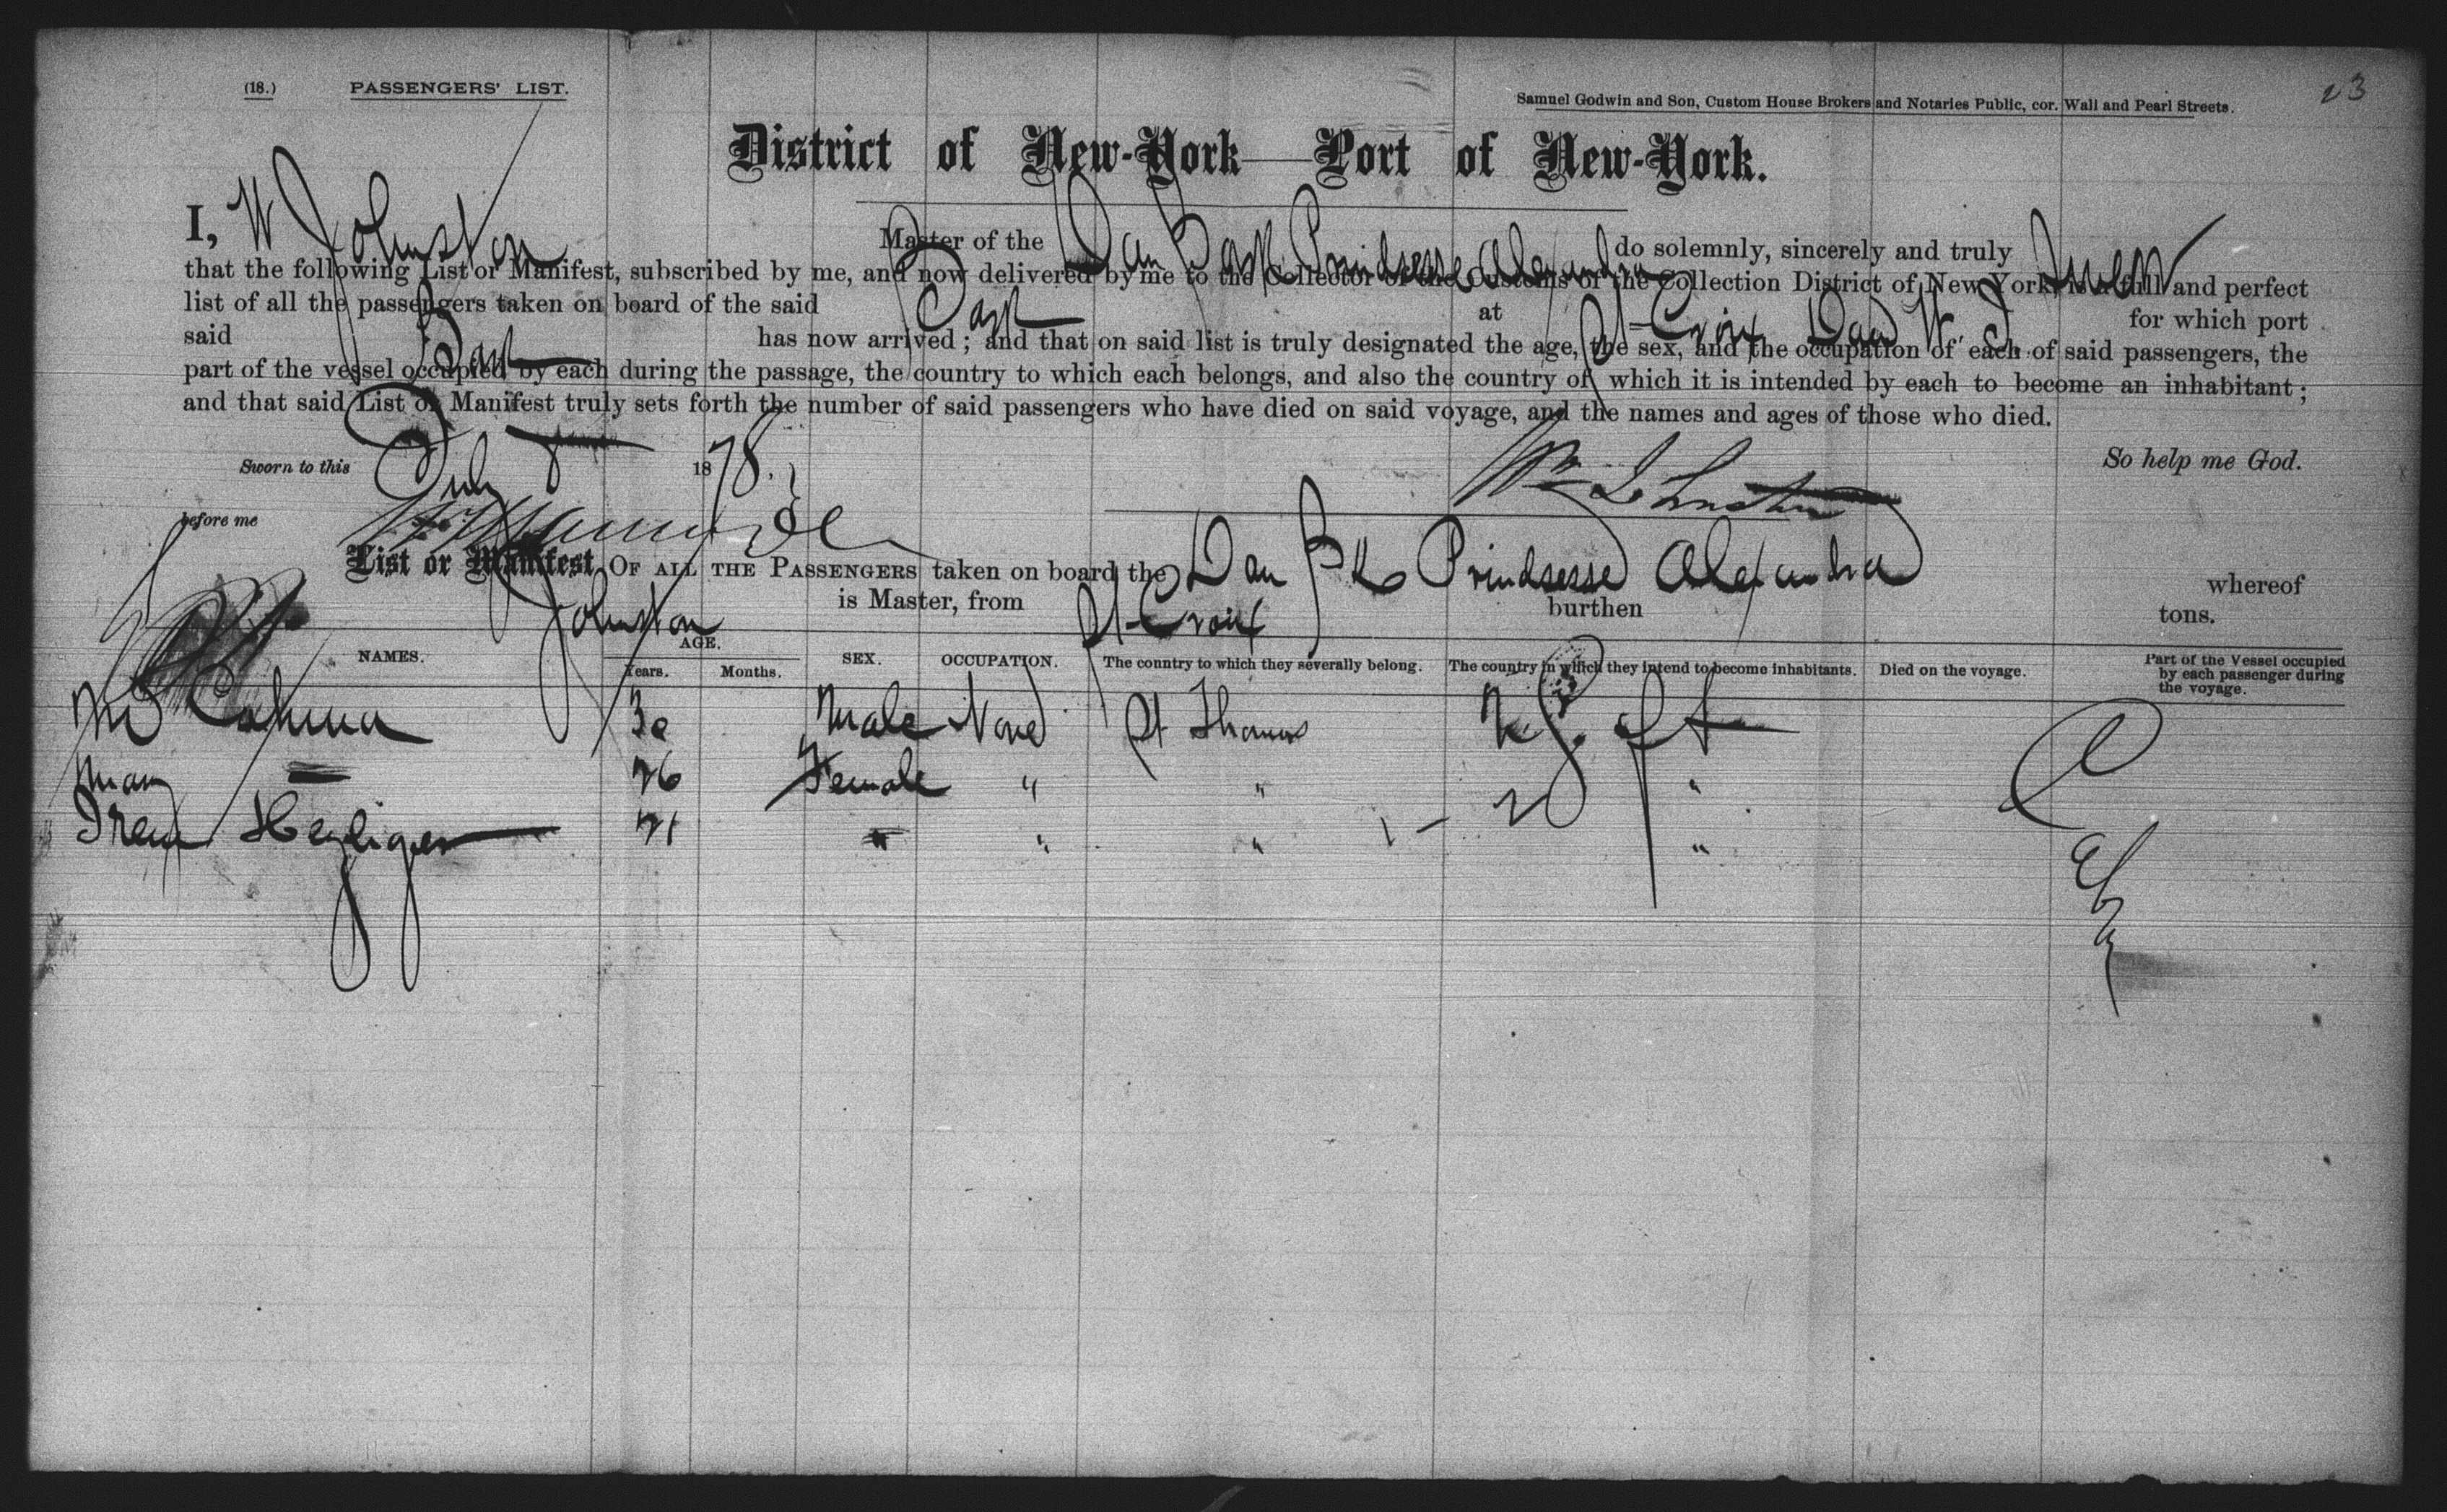 (18.) PASSENGERS' LIST. Samuel Godwin and Son, Custom House Brokers and Notaries Public, cor. Wall and Pearl Streets. 23
District of New-York—Port of New-York.
I, W Johnston Master of the Dan Bark Prindsesse Alexandra do solemnly, sincerely and truly swear
that the following List or Manifest, subscribed by me, and now delivered by me to the Collector of the Customs of the Collection District of New York, is a full and perfect
list of all the passengers taken on board of the said Bark at St Croix for which port
said Bark has now arrived; and that on said list is truly designated the age, the sex, and the occupation of each of said passengers, the
part of the vessel occupied by each during the passage, the country to which each belongs, and also the country of which it is intended by each to become an inhabitant;
and that said List or Manifest truly sets forth the number of said passengers who have died on said voyage, and the names and ages of those who died.
Sworn to this July 1878. So help me God.
before me Wm Johnston
List or Manifest OF ALL THE PASSENGERS taken on board the Dan Bk Prindsesse Alexandra whereof
Johnston is Master, from St Croix burthen tons.
NAMES. AGE. Years. Months. SEX. OCCUPATION. The country to which they severally belong. The country in which they intend to become inhabitants. Died on the voyage. Part of the Vessel occupied by each passenger during the voyage.
30 Male None St Thomas
Mary — 26 Female " " "
Heyliger 21 " " " "